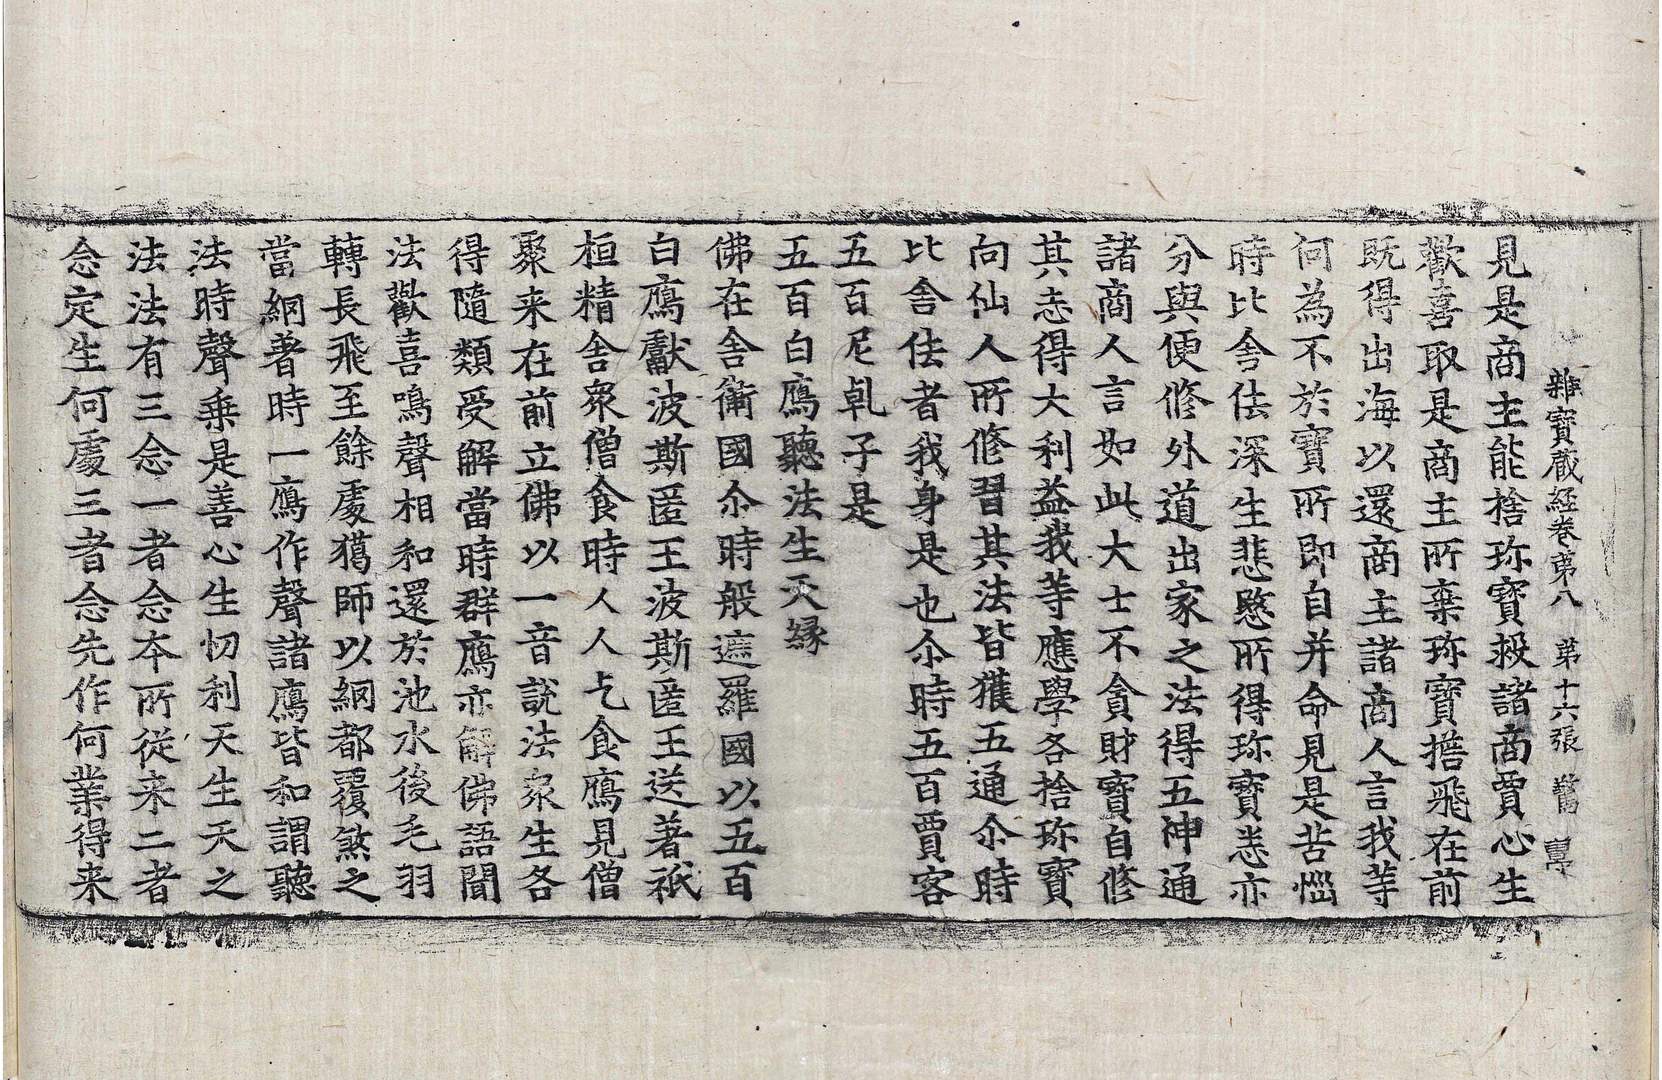 雜寶藏經卷第八　第十六張　驚
見是商主能捨珎寶救諸商賈心生
歡喜取是商主所棄珎寶擔飛在前
既得出海以還商主諸商人言我等
何為不於寶所即自并命見是苦惱
時比舍佉深生悲愍所得珎寶悉亦
分與便修外道出家之法得五神通
諸商人言如此大士不貪財寶自修
其志得大利益我等應學各捨珎寶
向仙人所修習其法皆獲五通尒時
比舍佉者我身是也尒時五百賈客
五百尼乹子是
五百白鴈聽法生天緣
佛在舍衛國尒時般遮羅國以五百
白鴈獻波斯匿王波斯匿王送著祇
桓精舍衆僧食時人人乞食鴈見僧
聚来在前立佛以一音說法衆生各
得隨類受解當時群鴈亦解佛語聞
法歡喜鳴聲相和還於池水後毛羽
轉長飛至餘處獦師以網都覆煞之
當網著時一鴈作聲諸鴈皆和謂聽
法時聲乗是善心生忉利天生天之
法法有三念一者念夲所從来二者
念定生何處三者念先作何業得来